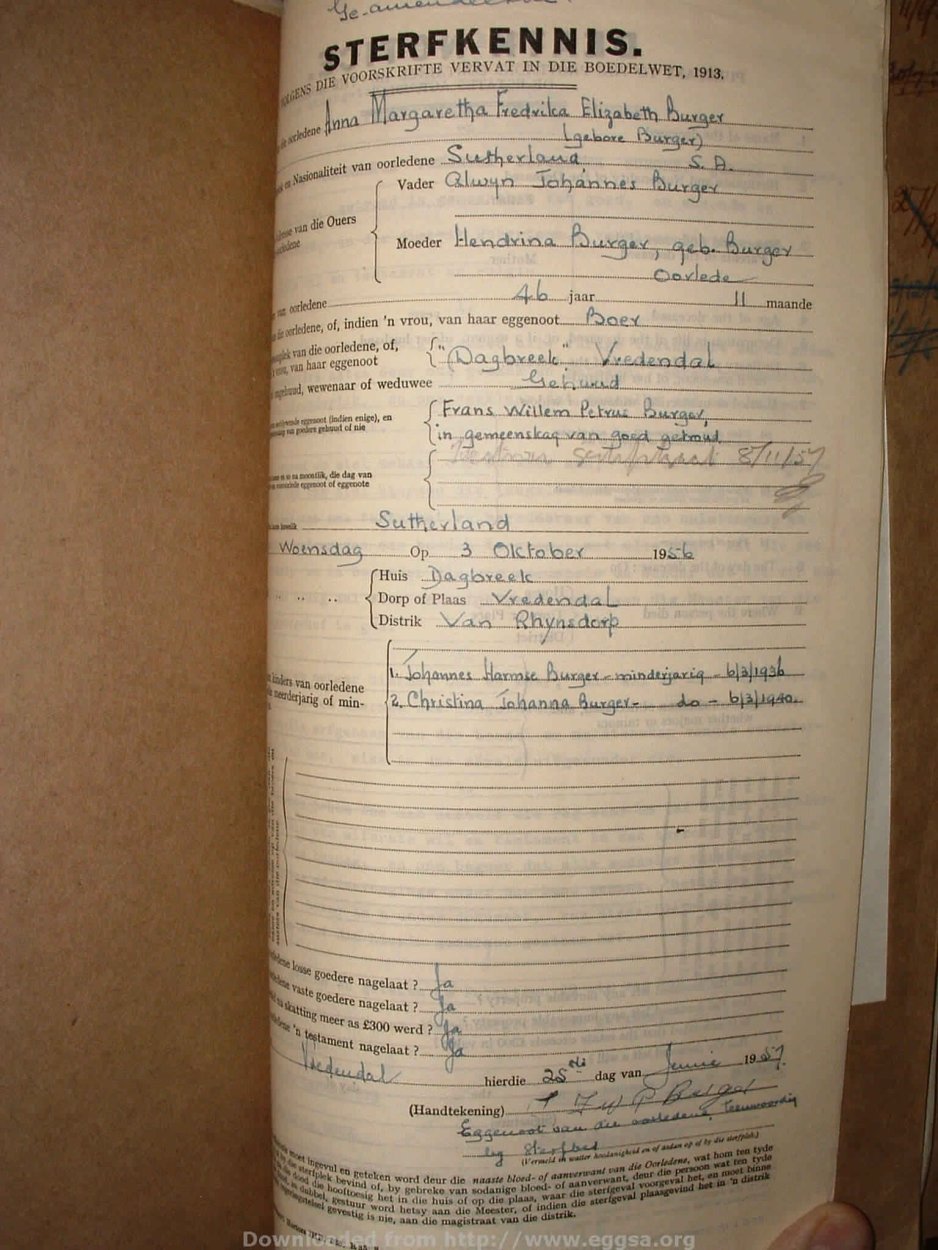 STERFKENNIS.
VOLGENS DIE VOORSKRIFTE VERVAT IN DIE BOEDELWET, 1913.
oorledene Anna Margaretha Fredrika Elizabeth Burger
(gebore Burger)
en Nasionaliteit van oorledene Sutherland S. A.
Vader Alwyn Johannes Burger
van die Ouers
Moeder Hendrina Burger, geb. Burger
Oorlede
van oorledene 46 jaar 11 maande
die oorledene, of, indien 'n vrou, van haar eggenoot Boer
van die oorledene, of,
vrou, van haar eggenoot "Dagbreek" Vredendal
ongehuud, wewenaar of weduwee Gehuud
eggenoot (indien enige), en Frans Willem Petrus Burger,
van goedere gehuud of nie in gemeenskap van goed getroud.
8/11/57
moontlik, die dag van
eggenoot of eggenote
Sutherland
Woensdag Op 3 Oktober 1956
Huis Dagbreek
Dorp of Plaas Vredendal
Distrik Van Rhynsdorp
1. Johannes Harmse Burger - minderjarig - 6/3/1936
kinders van oorledene
meerderjarig of min-
2. Christina Johanna Burger - do - 6/3/1940.
losse goedere nagelaat ? Ja
vaste goedere nagelaat ? Ja
skatting meer as £300 werd ? Ja
'n testament nagelaat ? Ja
Vredendal hierdie 25 ste dag van Junie 1957.
(Handtekening) F W P Burger
Eggenoot van die oorledene, teenwoordig
by sterfbed
(Vermeld in watter hoedanigheid en of aldan op of by die sterfplek)
moet ingevul en geteken word deur die naaste bloed- of aanverwant van die Oorledene, wat hom ten tyde
die sterfplek bevind of, by gebreke van sodanige bloed- of aanverwant, deur die persoon wat ten tyde
die dood die hooftoesig het in die huis of op die plaas, waar die sterfgeval voorgeval het, en moet binne
dubbel, gestuur word hetsy aan die Meester, of indien die sterfgeval plaasgevind het in 'n distrik
gevestig is nie, aan die magistraat van die distrik.
Downloaded from http://www.eggsa.org